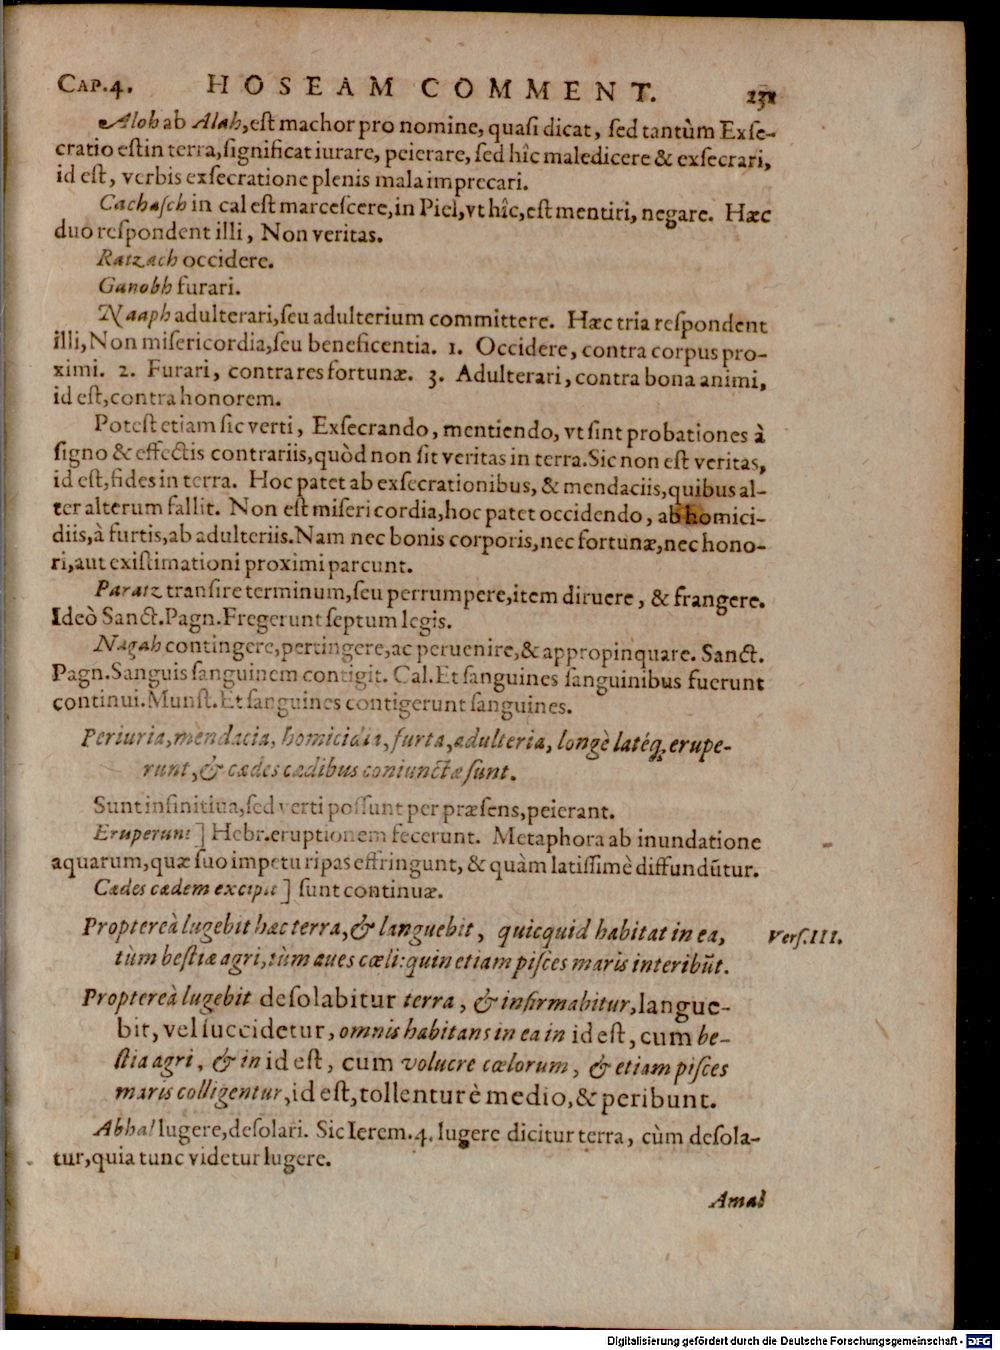 CAP.4. HOSEAM COMMENT. 231
Aloh ab Alah, est machor pro nomine, quasi dicat, sed tantùm Exse-
cratio est in terra, significat iurare, peierare, sed hîc maledicere & exsecrari,
id est, verbis exsecratione plenis mala imprecari.
Cachasch in cal est marcescere, in Piel, vt hîc, est mentiri, negare. Hæc
duo respondent illi, Non veritas.
Ratzach occidere.
Ganobh furari.
Naaph adulterari, seu adulterium committere. Hæc tria respondent
illi, Non misericordia, seu beneficentia. 1. Occidere, contra corpus pro-
ximi. 2. Furari, contra res fortunæ. 3. Adulterari, contra bona animi,
id est, contra honorem.
Potest etiam sic verti, Exsecrando, mentiendo, vt sint probationes à
signo & effectis contrariis, quòd non sit veritas in terra. Sic non est veritas,
id est, fides in terra. Hoc patet ab exsecrationibus, & mendaciis, quibus al-
ter alterum fallit. Non est misericordia, hoc patet occidendo, ab homici-
diis, à furtis, ab adulteriis. Nam nec bonis corporis, nec fortunæ, nec hono-
ri, aut existimationi proximi parcunt.
Paratz transire terminum, seu perrumpere, item diruere, & frangere.
Ideò Sanct. Pagn. Fregerunt septum legis.
Nagah contingere, pertingere, ac peruenire, & appropinquare. Sanct.
Pagn. Sanguis sanguinem contigit. Cal. Et sanguines sanguinibus fuerunt
continui. Munst. Et sanguines contigerunt sanguines.
Periuria, mendacia, homicidia, furta, adulteria, longè latéq; erupe-
runt, & cædes cædibus coniunctæ sunt.
Sunt infinitiua, sed verti possunt per præsens, peierant.
Eruperunt] Hebr. eruptionem fecerunt. Metaphora ab inundatione
aquarum, quæ suo impetu ripas effringunt, & quàm latissimè diffundūtur.
Cædes cædem excipit] sunt continuæ.
Propterеà lugebit hæc terra, & languebit, quicquid habitat in ea, Vers. III.
tùm bestiæ agri, tùm aues cæli: quin etiam pisces maris interibūt.
Propterеà lugebit desolabitur terra, & infirmabitur, langue-
bit, vel succidetur, omnis habitans in ea in id est, cum be-
stia agri, & in id est, cum volucre cœlorum, & etiam pisces
maris colligentur, id est, tollentur è medio, & peribunt.
Abhal lugere, desolari. Sic Ierem. 4. lugere dicitur terra, cùm desola-
tur, quia tunc videtur lugere.
Amal
Digitalisierung gefördert durch die Deutsche Forschungsgemeinschaft - DFG